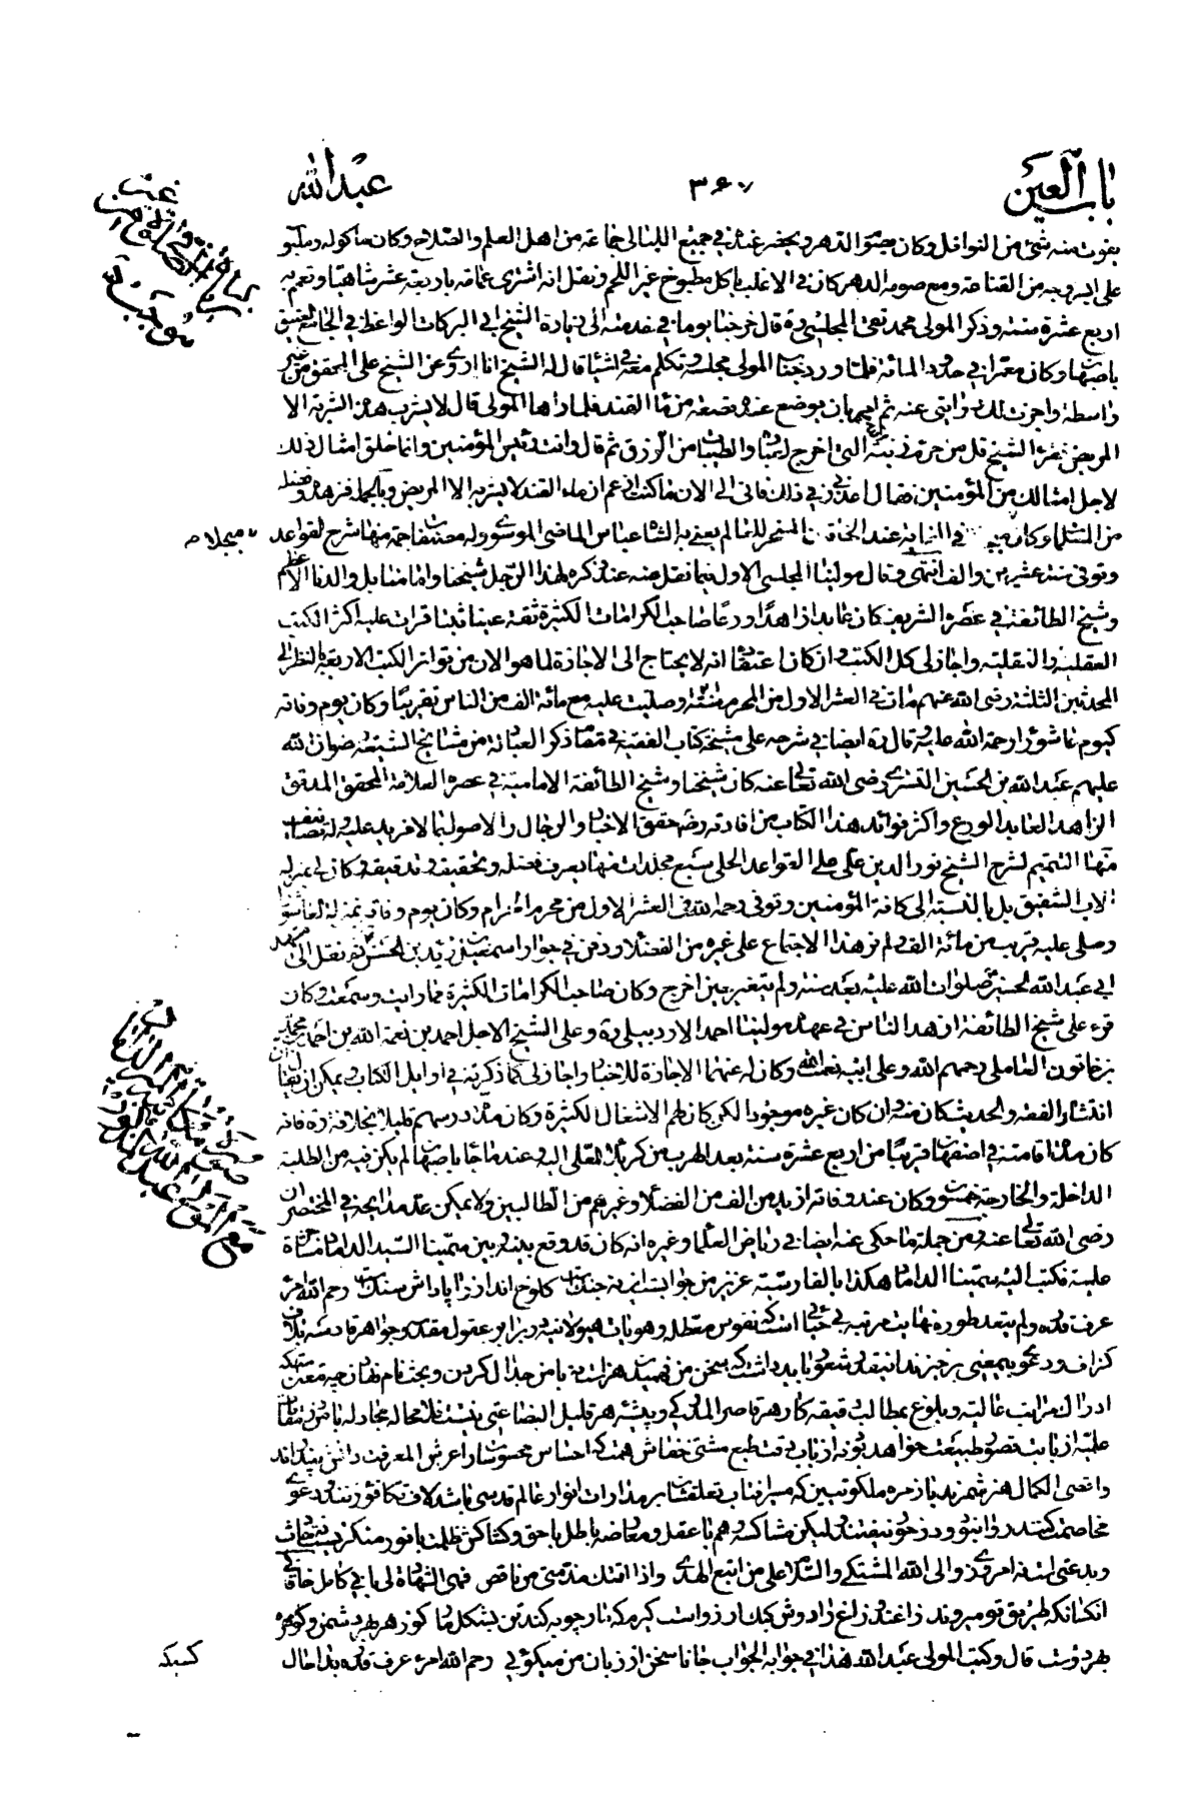 باب العين
٣٦٧
عبد الله
يفوت منه شئ من النوافل وكان يصوم الدهر ويحضر عنده في جميع الليالي جماعة من اهل العلم والصلاح وكان مأكوله وملبوسه
على ايسر وجه من القناعة ومع صومه الدهر كان في الاغلب ياكل مطبوخ غير اللحم ونقل انه اشترى عمامة باربعة عشر شاهيا وتعمم به
اربع عشرة سنة وذكر المولى محمد تقي المجلسي ره قال خرجنا يوما في خدمته الى زيارة الشيخ ابي البركات الواعظ في الجامع العتيق
باصبهان وكان معمرا في حدود المائة فلما ورد جناب المولى مجلسه وتكلم معه في اشياء قال له الشيخ انا اروي عن الشيخ علي المحقق من غير
واسطة واجزت لك روايتي عنه ثم امر بان يوضع عنده قصعة من ماء القند فلما راها المولى قال لا يشرب هذه الشربة الا
المريض فقرأ الشيخ قل من حرم زينة الله التي اخرج لعباده والطيبات من الرزق ثم قال وانت رئيس المؤمنين وانما خلق امثال ذلك
لاجل امثالك من المؤمنين فقال اعذرني في ذلك فاني الى الان ما كنت ازعم ان ماء القند لا يشربه الا المريض وبالجملة فزهده وفضله
من المسلمات وكان في النهاية عند الخاقان المسخر للعالم يعني به الشاه عباس الماضي الموسوي وله مصنفات جمة منها شرح القواعد
٧ مجلد م
وتوفي سنة عشرين والف انتهى وقال مولينا المجلسي الاول فيما نقل عنه عند ذكره لهذا الرجل شيخنا وامامنا بل والدنا الاعظم
وشيخ الطائفة في عصره الشريف كان عابدا زاهدا ورعا صاحب الكرامات الكثيرة ثقة عينا ثبتا قرأت عليه اكثر الكتب
العقلية والنقلية واجاز لي كل الكتب وان كان اعتقادنا انه لا يحتاج الى الاجازة لما هو الان من تواتر الكتب الاربعة بالنظر الى
المحدثين الثلثة رضي الله عنهم مات في العشر الاول من المحرم وصليت عليه مع مائة الف من الناس تقريبا وكان يوم وفاته
كيوم عاشوراء رحمة الله عليه وقال ره ايضا في شرحه على مشيخة كتاب الفقيه في مقام ذكر العبادلة من مشايخ الشيعة رضوان الله
عليهم عبد الله بن الحسين التستري رضي الله تعالى عنه كان شيخنا وشيخ الطائفة الامامية في عصره العلامة المحقق المدقق
الزاهد العابد الورع واكثر فوائد هذا الكتاب من افادته رضه حقق الاخبار والرجال والاصول بما لا مزيد عليه وله تصانيف
منها التتميم لشرح الشيخ نور الدين علي على القواعد الحلي سبع مجلدات منها يعرف فضله وتحقيقه وتدقيقه وكان لي بمنزلة
الاب الشفيق بل بالنسبة الى كافة المؤمنين وتوفي رحمه الله في العشر الاول من محرم الحرام وكان يوم وفاته بمنزلة العاشوراء
وصلى عليه قريب من مائة الف ولم نر هذا الاجتماع على غيره من الفضلاء ودفن في جوار اسمعيل بن زيد بن الحسن ثم نقل الى مشهد
ابي عبد الله الحسين صلوات الله عليه بعد سنة ولم يتغير حين اخرج وكان صاحب الكرامات الكثيرة مما رايت وسمعت وكان
قرء على شيخ الطائفة ازهد الناس في عهده مولينا احمد الاردبيلي ره وعلى الشيخ الاجل احمد بن نعمة الله بن احمد بن محمد
بن خاتون العاملي رحمهم الله وعلى ابيه نعمة الله وكان له عنهما الاجازة للاخبار واجاز لي كما ذكرته في اوايل الكتاب ويمكن ان يقال
انتشار الفقه والحديث كان منه وان كان غيره موجودا لكن كان لهم الاشغال الكثيرة وكان مدة درسهم قليلا بخلافه ره فانه
كان مدة اقامته في اصفهان قريبا من اربع عشرة سنة بعد الهرب من كربلاء المعلى اليه وعندما جاء باصبهان لم يكن فيه من الطلبة
الداخلة والخارجة خمسون وكان عند وفاته ازيد من الف من الفضلاء وغيرهم من الطالبين ولا يمكن عد مدايحه في المختصر ان
رضي الله تعالى عنه ومن جملة ما حكى عنه ايضا في رياض العلماء وغيره انه كان قد وقع بينه وبين سمينا السيد الداماد مشاة
علمية فكتب اليه سمينا الداماد هكذا بالفارسية عزيز من جوابست اين نه جنگ است كلوخ انداز را پاداش سنگ است رحم الله امرء
عرف قدره ولم يتعد طوره نهايت مرتبه بي حيائي است كه نفوس معطله وهويات هيولانيه در برابر عقول مقدسه وجواهر قادسه بلاف
گزاف ودعوى بيمعنى برخيزند اينقدر شعور بايد داشت كه سخن من فهميدن هنر است نه با من جدال كردن وبحث نام نهادن چه معين است كه
ادراك مراتب عاليه وبلوغ بمطالب دقيقه كار هر قاصر المدركى وپيشه هر قليل البضاعتي نيست فلا محاله مجادله با من در مقامات
علميه از بابت قصور طبيعت خواهد بود نه از باب دقت طبع مشتى خفاش همت كه احساس محسوسات را عرش المعرفت دانش پندارند
واقصى الكمال هنر شمرند با زمره ملكوتيين كه مسير آفتاب تعلقشان بر مدارات انوار عالم قدسى باشد لاف تكافؤ زنند ودعوى
مخاصمت كنند روا نبود ودر خور نيفتد وليكن مشاكسه وهم با عقل ومعارضه باطل با حق وكشاكش ظلمت با نور منكر نيست حادث
وبدعتى است نه امروزى والى الله المشتكى والسلام على من اتبع الهدى واذا اتتك مذمتي من ناقص فهي الشهادة لي باني كامل خاقاني
آنكسانكه طريق تو ميروند زاغند وزاغ را روش كبك آرزوست گيرم كه مارچوبه كند تن بشكل مار كو زهر بهر دشمن وكو مهره
بهر دوست قال وكتب المولى عبد الله هذا في جوابه الجواب جانا سخن از زبان من ميگوئى رحم الله امرء عرف قدره بدا حال
كسيكه